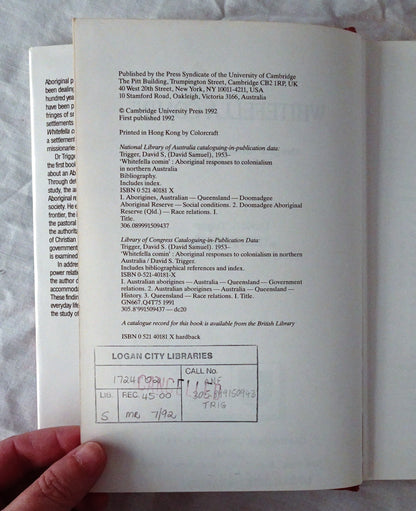 Aboriginal p
been dealing
hundred year
have been p
fringes of s
settlements
Whitefella co
a settlement
missionaries
Dr Trigger
the first book
about an Ab
Through det
study, the a
Aboriginal re
society. He e
frontier, the i
the pastoral
the authorita
of Christian
government
is examined
In addre
power relati
the author d
accommoda
These finding
everyday life
the study of
Published by the Press Syndicate of the University of Cambridge
The Pitt Building, Trumpington Street, Cambridge CB2 1RP, UK
40 West 20th Street, New York, NY 10011-4211, USA
10 Stamford Road, Oakleigh, Victoria 3166, Australia
© Cambridge University Press 1992
First published 1992
Printed in Hong Kong by Colorcraft
National Library of Australia cataloguing-in-publication data:
Trigger, David S, (David Samuel), 1953–
'Whitefella comin' : Aboriginal responses to colonialism
in northern Australia
Bibliography.
Includes index.
ISBN 0 521 40181 X
1. Aborigines, Australian — Queensland — Doomadgee
Aboriginal Reserve — Social conditions. 2. Doomadgee Aboriginal
Reserve (Qld.) — Race relations. I.
Title.
306.089991509437
Library of Congress Cataloguing-in-Publication Data:
Trigger, David S. (David Samuel). 1953–
'Whitefella comin' : Aboriginal responses to colonialism in northern
Australia / David S. Trigger.
Includes bibliographical references and index.
ISBN 0-521-40181-X
1. Australian aborigines — Australia — Queensland — Government
relations. 2. Australian aborigines — Australia — Queensland —
History. 3. Queensland — Race relations. I. Title.
GN667.Q4T75 1991
305.8'991509437 — dc20
A catalogue record for this book is available from the British Library
ISBN 0 521 40181 X hardback
LOGAN CITY LIBRARIES
CALL No.
CANCELLED
ANE
305.899150943
TRIG
LIB.
S
REC. 45-00
MR 7/92